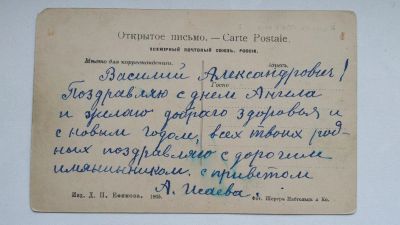 Открытое письмо. — Carte Postale.
ВСЕМІРНЫЙ ПОЧТОВЫЙ СОЮЗЪ. РОССІЯ.
Мѣсто для корреспонденціи.
Адресъ.
Василий Александрович!
Поздравляю с днем Ангела
и желаю добраго здоровья и
с новым годом, всех твоих род
ных поздравляю с дорогим
имянинником. с приветом
А. Исаева.
Изд. Д. П. Ефимова. 1905.
Фот. Шереръ Набгольцъ и Ко.